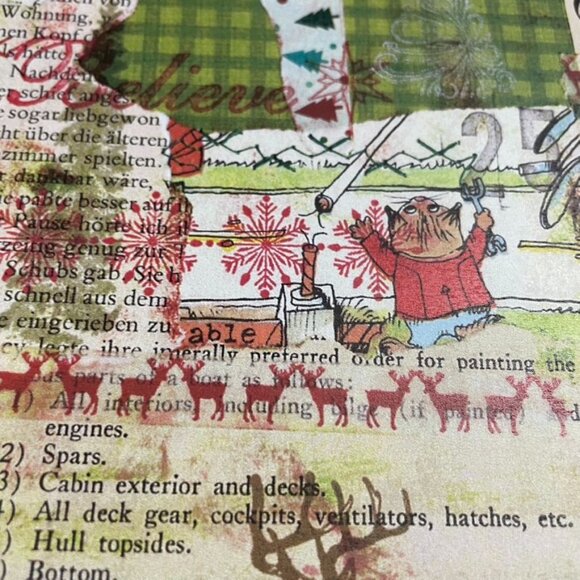 Wohnung,
Nachdem
Believe
sogar liebgewon
ht über die älteren
zimmer spielten.
dankbar ware,
paßte besser auf
25
Pause hörte ich
zeitig genug zu
Schubs gab. Sie
schnell aus dem
eingerieben zu
able
legte ihre
merally preferred order for painting the
parts of a boat as follows:
1) All interiors, including bilge (if painted) and
engines.
2) Spars.
3) Cabin exterior and decks.
4) All deck gear, cockpits, ventilators, hatches, etc.
) Hull topsides.
) Bottom.